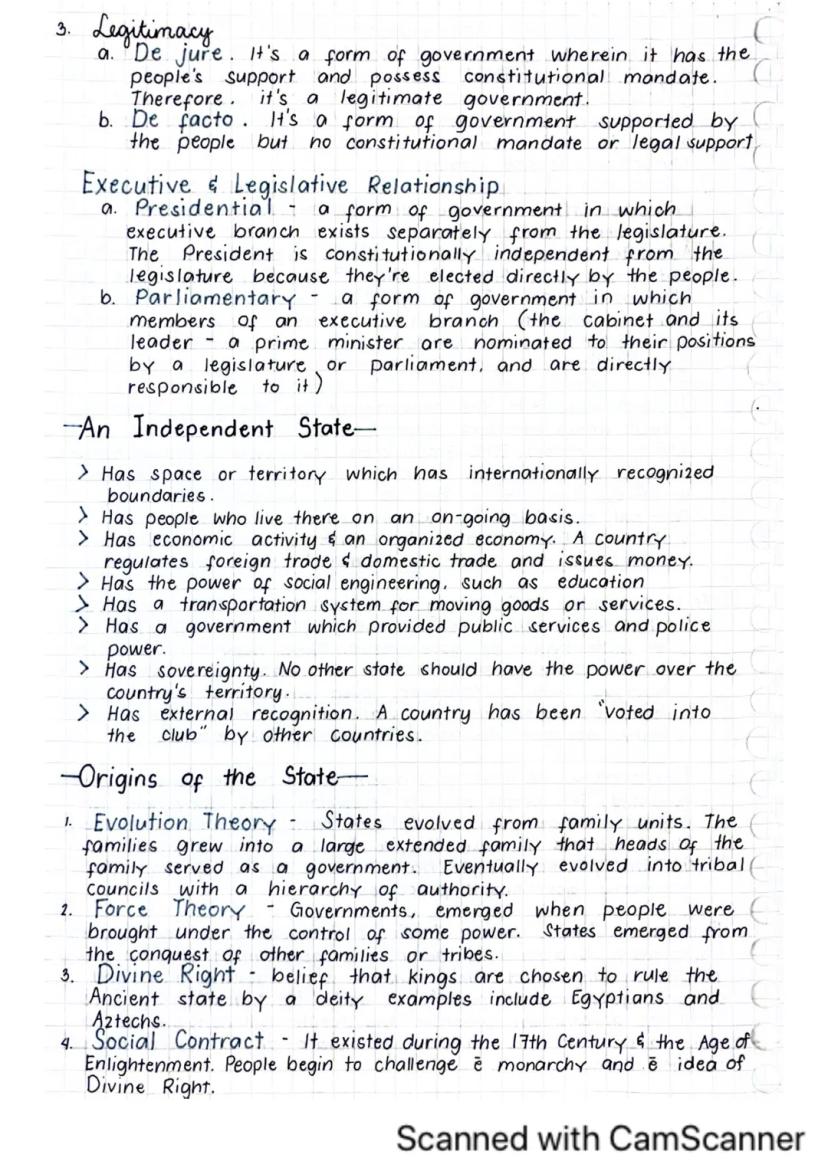 3. Legitimacy
a. De jure. It's a form of government wherein it has the
people's support and possess constitutional mandate.
Therefore, it's a legitimate government.
b. De facto. It's a form of government supported by
the people but no constitutional mandate or legal support
Executive & Legislative Relationship
a. Presidential - a form of government in which
executive branch exists separately from the legislature.
The President is constitutionally independent from the
legislature because they're elected directly by the people.
b. Parliamentary - a form of government in which
members of an executive branch (the cabinet and its
leader - a prime minister are nominated to their positions
by a legislature or parliament, and are directly
responsible to it)
-An Independent State-
> Has space or territory which has internationally recognized
boundaries.
> Has people who live there on an on-going basis.
> Has economic activity & an organized economy. A country
regulates foreign trade & domestic trade and issues money.
> Has the power of social engineering, such as education
> Has a transportation system for moving goods or services.
> Has a government which provided public services and police
power.
> Has sovereignty. No other state should have the power over the
country's territory.
> Has external recognition. A country has been "voted into
the club" by other countries.
-Origins of the State-
1. Evolution Theory - States evolved from family units. The
families grew into a large extended family that heads of the
family served as a government. Eventually evolved into tribal
councils with a hierarchy of authority.
2. Force Theory - Governments, emerged when people were
brought under the control of some power. States emerged from
the conquest of other families or tribes.
3. Divine Right - belief that kings are chosen to rule the
Ancient state by a deity examples include Egyptians and
Aztechs.
4. Social Contract - It existed during the 17th Century & the Age of
Enlightenment. People begin to challenge ē monarchy and ē idea of
Divine Right.
Scanned with CamScanner